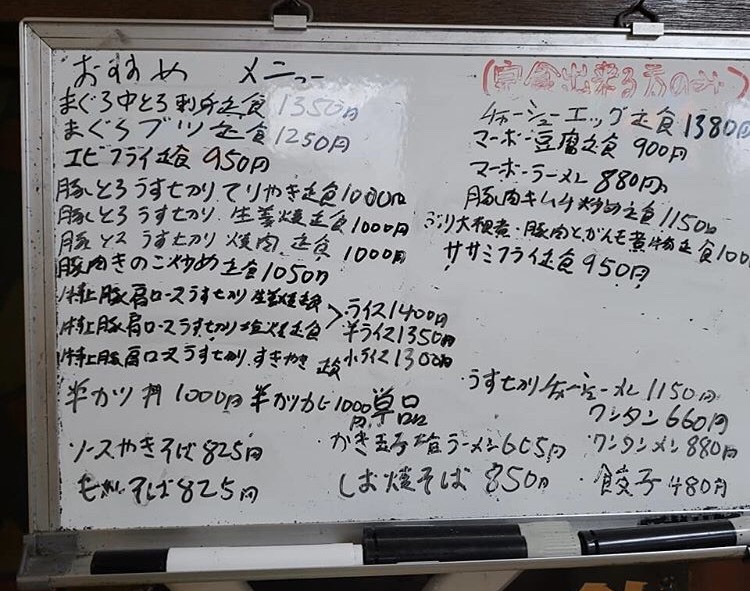 おすすめ メニュー
まぐろ中とろ刺身定食 1350円
まぐろブツ定食 1250円
エビフライ定食 950円
豚とろうす切りてりやき定食 1000円
豚とろうす切り 生姜焼定食 1000円
豚とろうす切り 焼肉 定食 1000円
豚肉きのこ炒め定食 1050円
特上豚肩ロースうす切り生姜焼定食
特上豚肩ロースうす切り塩焼定食
特上豚肩ロースうす切り すきやき 定食
ライス1400円
半ライス1350円
小ライス1300円
半カツ丼 1000円 半カツカレー1000円 単品
ソースやきそば 825円
もやしそば 825円
チャーシューエッグ定食 1380円
マーボー豆腐定食 900円
マーボーラーメン 880円
豚肉キムチ炒め定食 1150円
ぶり大根煮・豚肉とがんも煮物定食 100
ササミフライ定食 950円
うす切りチャーシューメン 1150円
ワンタン 660円
ラーメン 605円
ワンタンメン 880円
しお焼そば 850円
餃子 480円